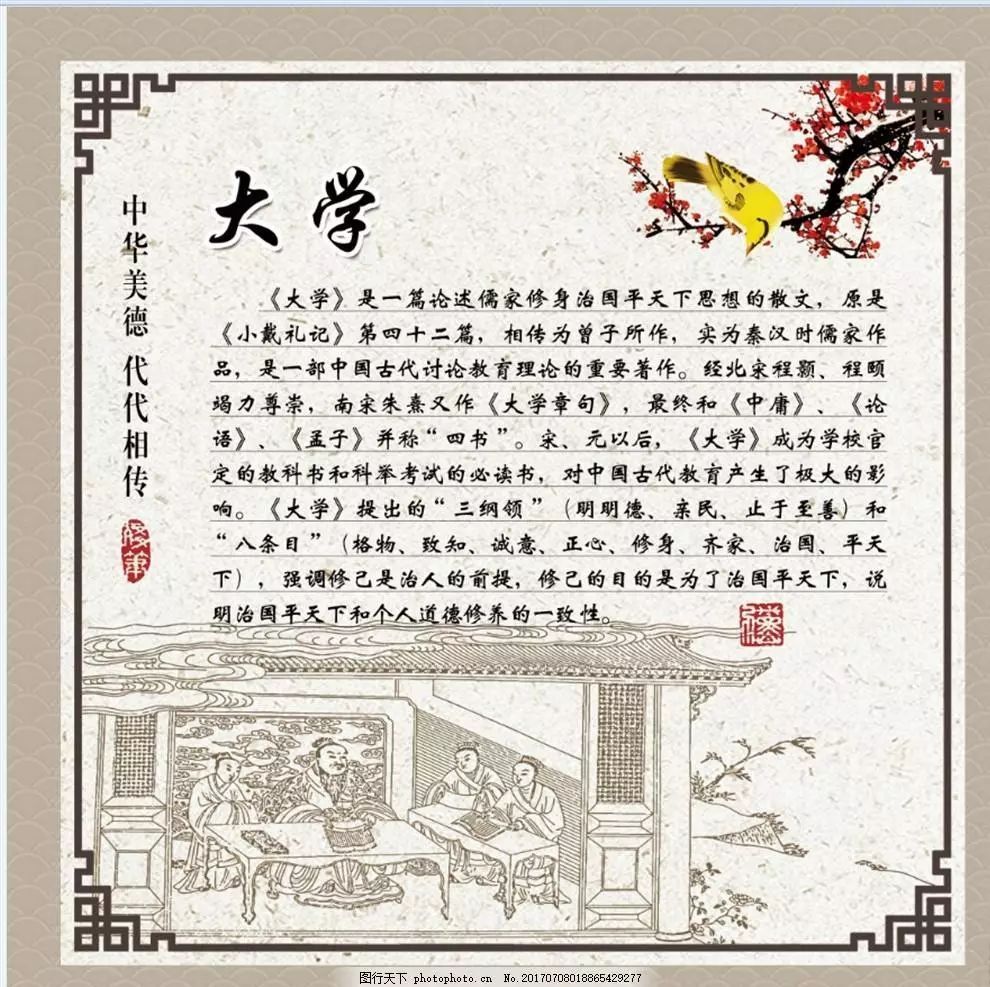 大学
中华美德 代代相传
《大学》是一篇论述儒家修身治国平天下思想的散文，原是
《小戴礼记》第四十二篇，相传为曾子所作，实为秦汉时儒家作
品，是一部中国古代讨论教育理论的重要著作。经北宋程颢、程颐
竭力尊崇，南宋朱熹又作《大学章句》，最终和《中庸》、《论
语》、《孟子》并称“四书”。宋、元以后，《大学》成为学校官
定的教科书和科举考试的必读书，对中国古代教育产生了极大的影
响。《大学》提出的“三纲领”（明明德、亲民、止于至善）和
“八条目”（格物、致知、诚意、正心、修身、齐家、治国、平天
下），强调修己是治人的前提，修己的目的是为了治国平天下，说
明治国平天下和个人道德修养的一致性。
图行天下 photophoto.cn No.20170708018865429277